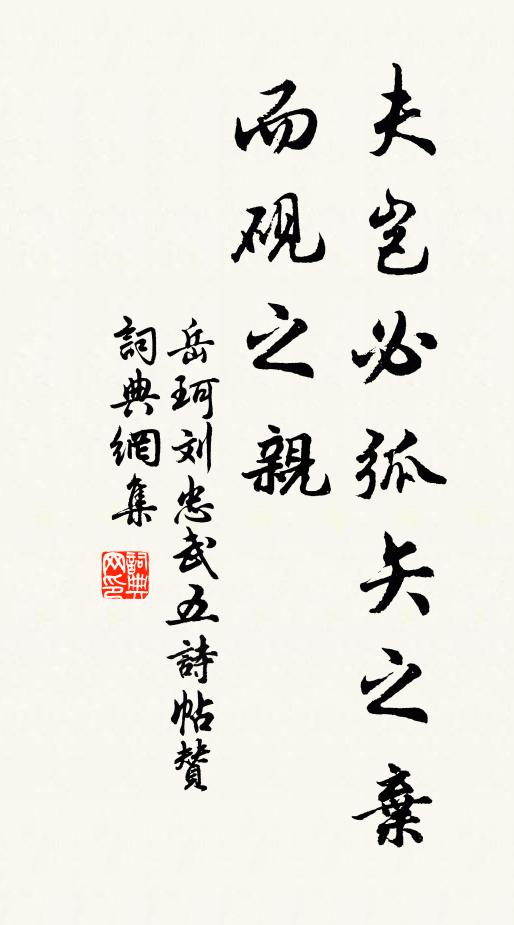 夫岂必弧矢之棄
而硯之親
岳珂刘忠武五詩帖赞
詞典網集
詞典网印